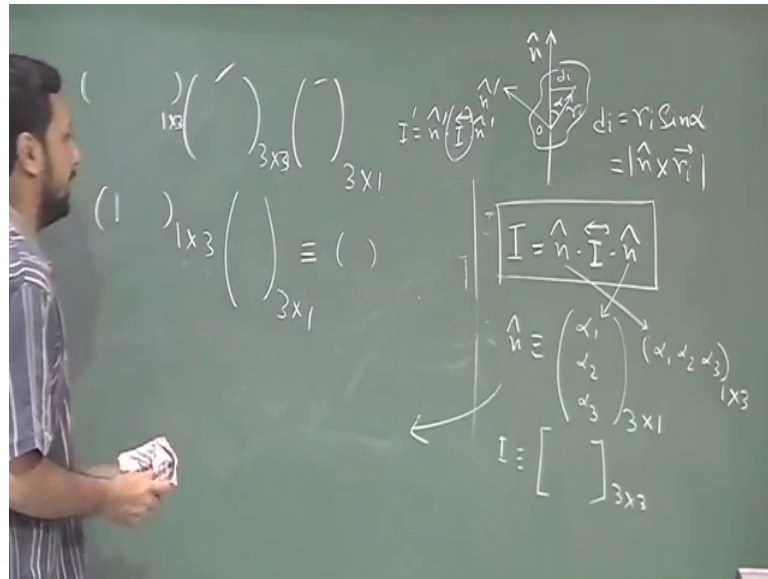 (     )1x3 (     )3x3 (     )3x1
(1     )1x3 (     )3x1 ≡ (  )
n̂
n̂'
di
α
ri
o
I' = n̂' (I⃡) n̂'
di = ri Sinα
= |n̂ x r⃗i|
I = n̂ · I⃡ · n̂
n̂ ≡ (α1 α2 α3)3x1 (α1 α2 α3)1x3
I ≡ [     ]3x3